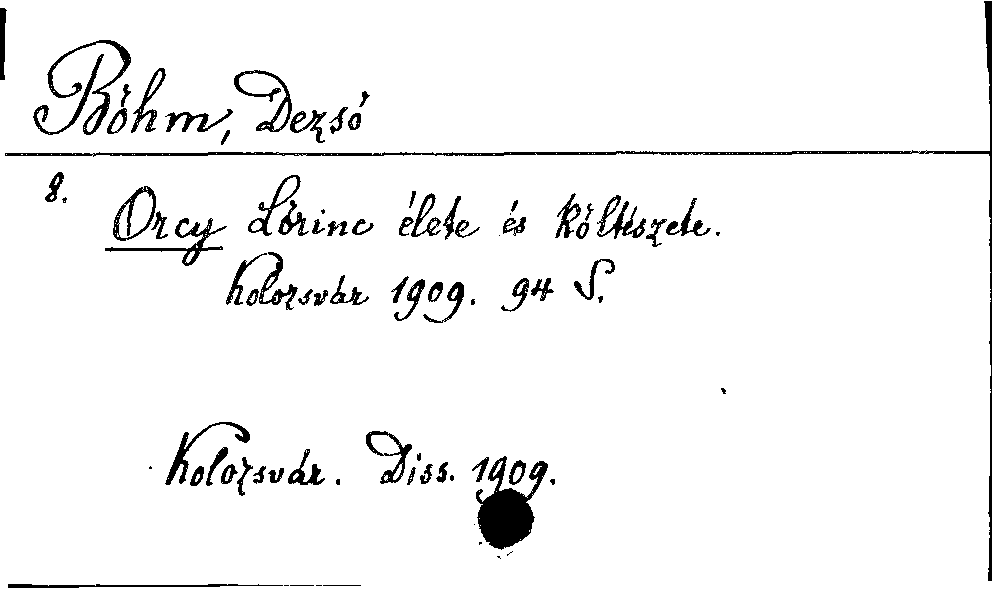 Böhm, Dezső
8.
Orcy Lőrinc élete és költészete.
Kolozsvár 1909. 94 S.
Kolozsvár. Diss. 1909.